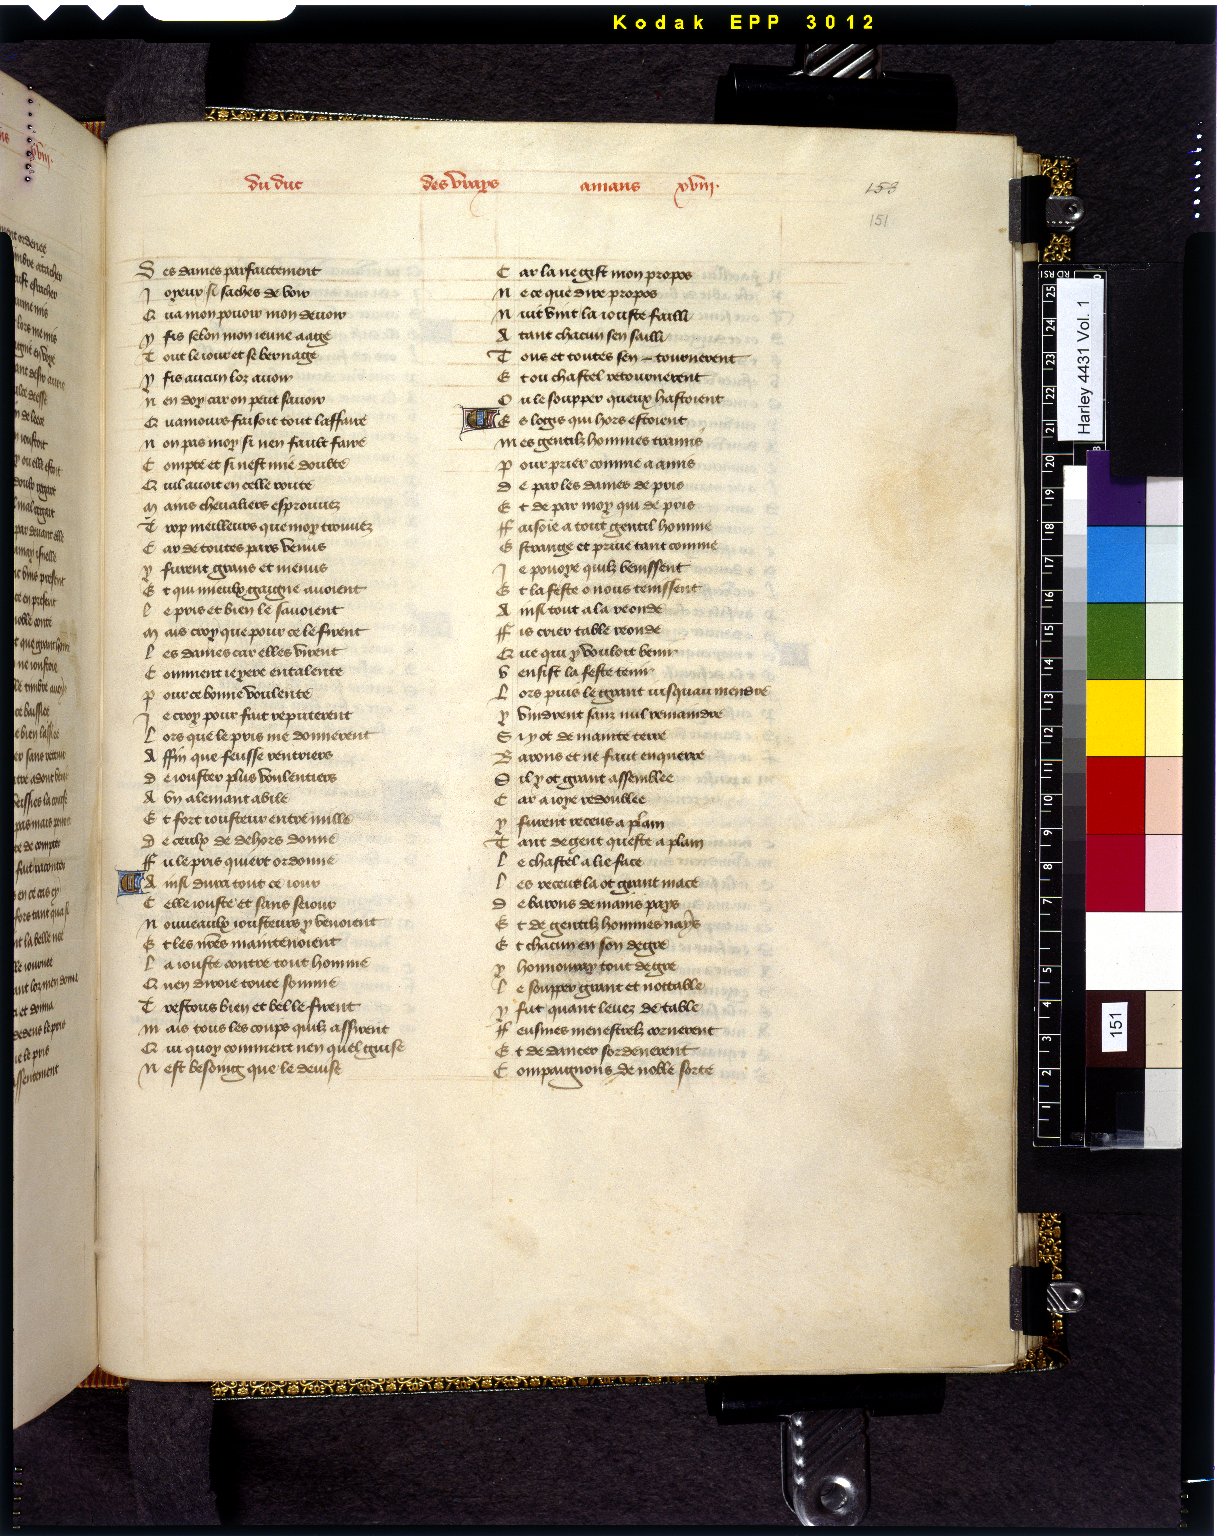 Kodak EPP 3012
du duc des vrays amans xviii.
153
151
Des dames parfaictement
Joyeux si saches de voir
Qua mon pouoir mon deuoir
y fis selon mon ieune aage
Tout le iour et se bernage
y fis aucun loz auoir
nen doy car on peut sauoir
Quamours faisoit tout laffaire
non pas moy si nen fault faire
Compte et si nest mie doubte
Quil auoit en celle route
mains cheualiers esprouuez
Trop meilleurs que moy trouuez
Car de toutes pars venus
y furent grans et menus
Et qui mieulx gaigne auoient
le pris et bien le sauoient
mais croy que pour ce le firent
les dames car elles virent
Comment ie yere entalente
pour ce bonne voulente
Je croy pour fait reputerent
Lors que le pris me donnerent
Affin que feusse rentriers
de iouster plus voulentiers
A vn alemant abile
Et fort iousteur entre mille
de ceulx de dehors donne
Fu le pris quiert ordonne
Ainsi dura tout ce iour
Celle iouste et sans seiour
nouueaulx iousteurs y venoient
Et les nres maintenoient
la iouste contre tout homme
Quen diroie toute somme
Trestous bien et bel le firent
mais tous les coups quilz assirent
Qui quoy comment nen quel guise
nest besoing que le deuise
Car la ne gist mon propos
Ne ce que dire propos
Nuit vint la iouste failli
Atant chacun sen sailli
Tous et toutes sen tournerent
Et ou chastel retournerent
Ou le soupper queux hastoient
Es logis qui hors estoient
mes gentilz hommes tramis
pour prier comme a amis
de par les dames de pris
Et de par moy qui de pris
Faisoie a tout gentil homme
Estrange et priue tant comme
Je pouoye quilz venissent
Et la feste o nous tenissent
Ainsi tout a la reonde
Fis crier table reonde
Que qui y vouloit venir
Vensist la feste tenir
Lors puis le grant iusquau mendre
y vindrent sanz nul remaindre
Si y ot de mainte terre
Barons et ne faut enquerre
Sil y ot grant assemblee
Car a ioye redoublee
y furent receus a plain
Tant de gent quefte a plain
le chastel a lie face
les receut la ot grant mace
de barons de mains pays
Et de gentilz hommes nays
Et chacun en son degre
y honnouray tout de gre
le soupper grant et nottable
y fut quant leuez de table
Feusmes menestrelz cornerent
Et de dancer sordenerent
Compaignons de noble sorte
Harley 4431 Vol. 1
151